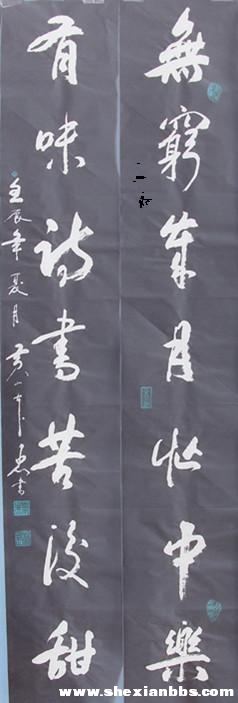 無窮歲月忙中樂
有味詩書苦後甜
壬辰年夏月黄山書
www.shexianbbs.com